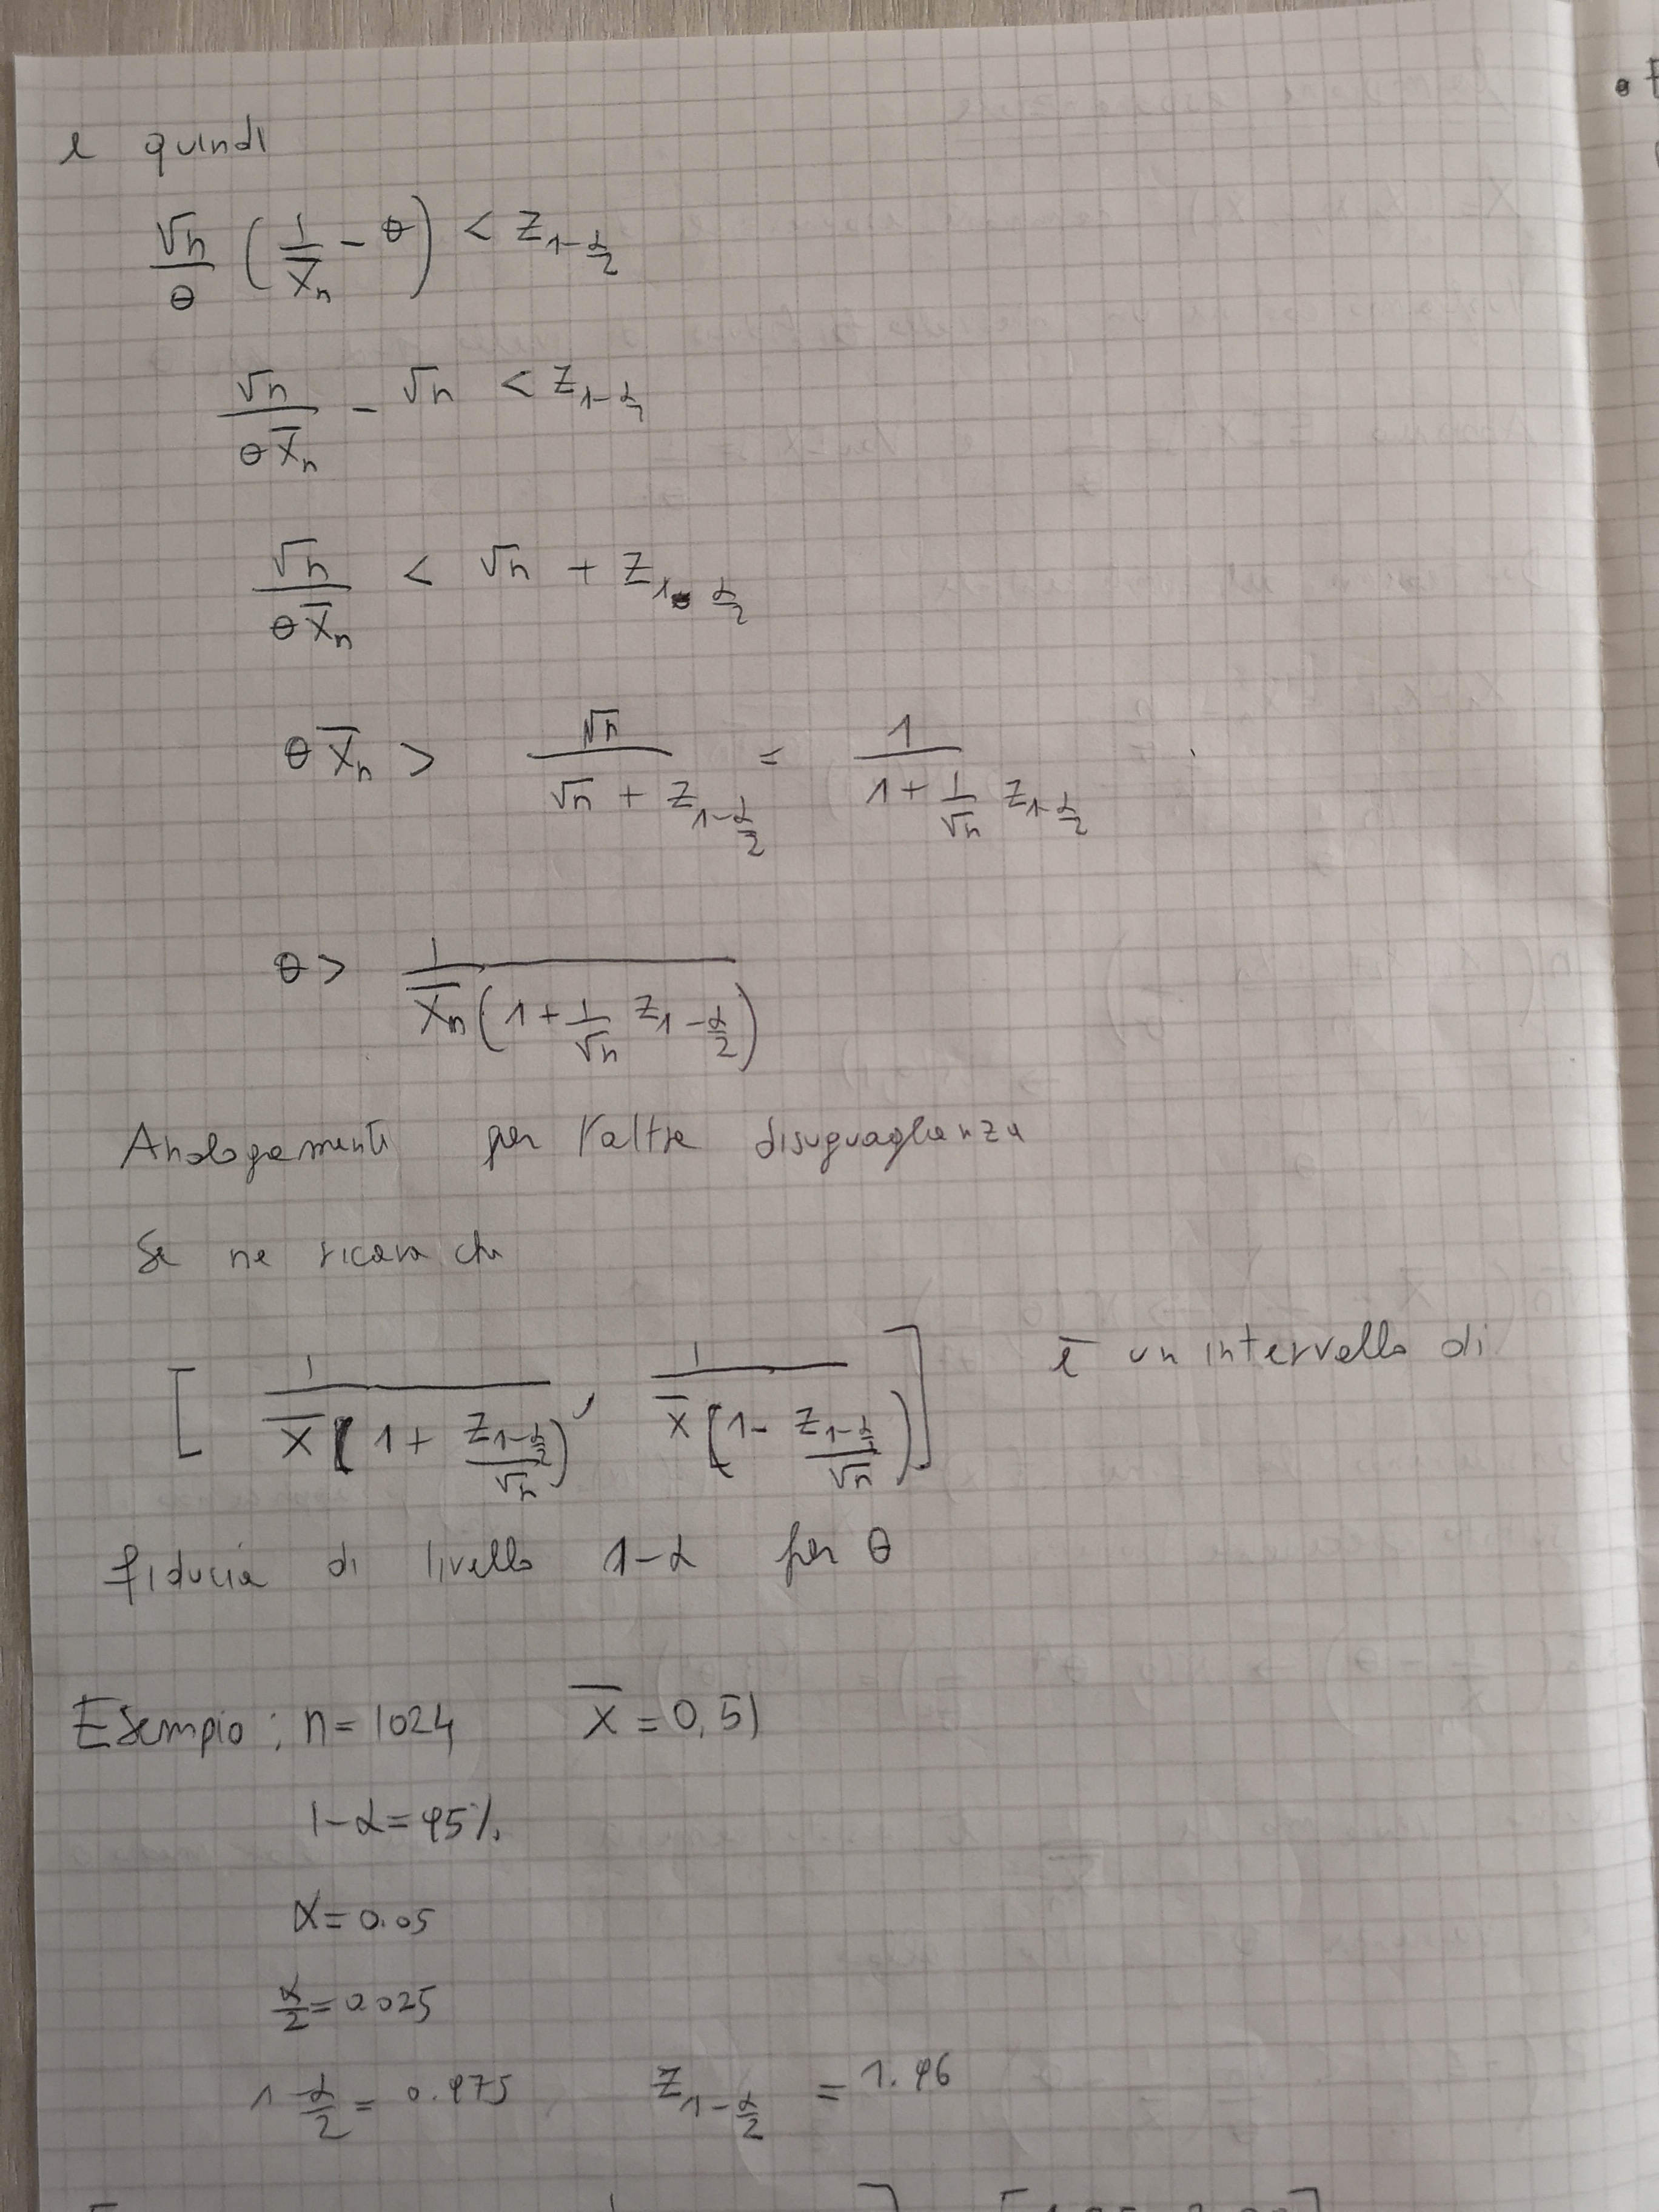 e quindi
√n/θ (1/X̄n − θ) < Z1−α/2
√n/(θX̄n) − √n < Z1−α/2
√n/(θX̄n) < √n + Z1−α/2
θX̄n > √n/(√n + Z1−α/2) = 1/(1 + 1/√n Z1−α/2)
θ > 1/(X̄n(1 + 1/√n Z1−α/2))
Analogamente per l'altra disuguaglianza
Se ne ricava che
[1/(X̄(1 + Z1−α/2/√n)), 1/(X̄(1 − Z1−α/2/√n))] è un intervallo di
fiducia di livello 1−α per θ
Esempio: n=1024 X̄=0,51
1−α=95%
α=0.05
α/2=0.025
1−α/2=0.975 Z1−α/2 = 1.96